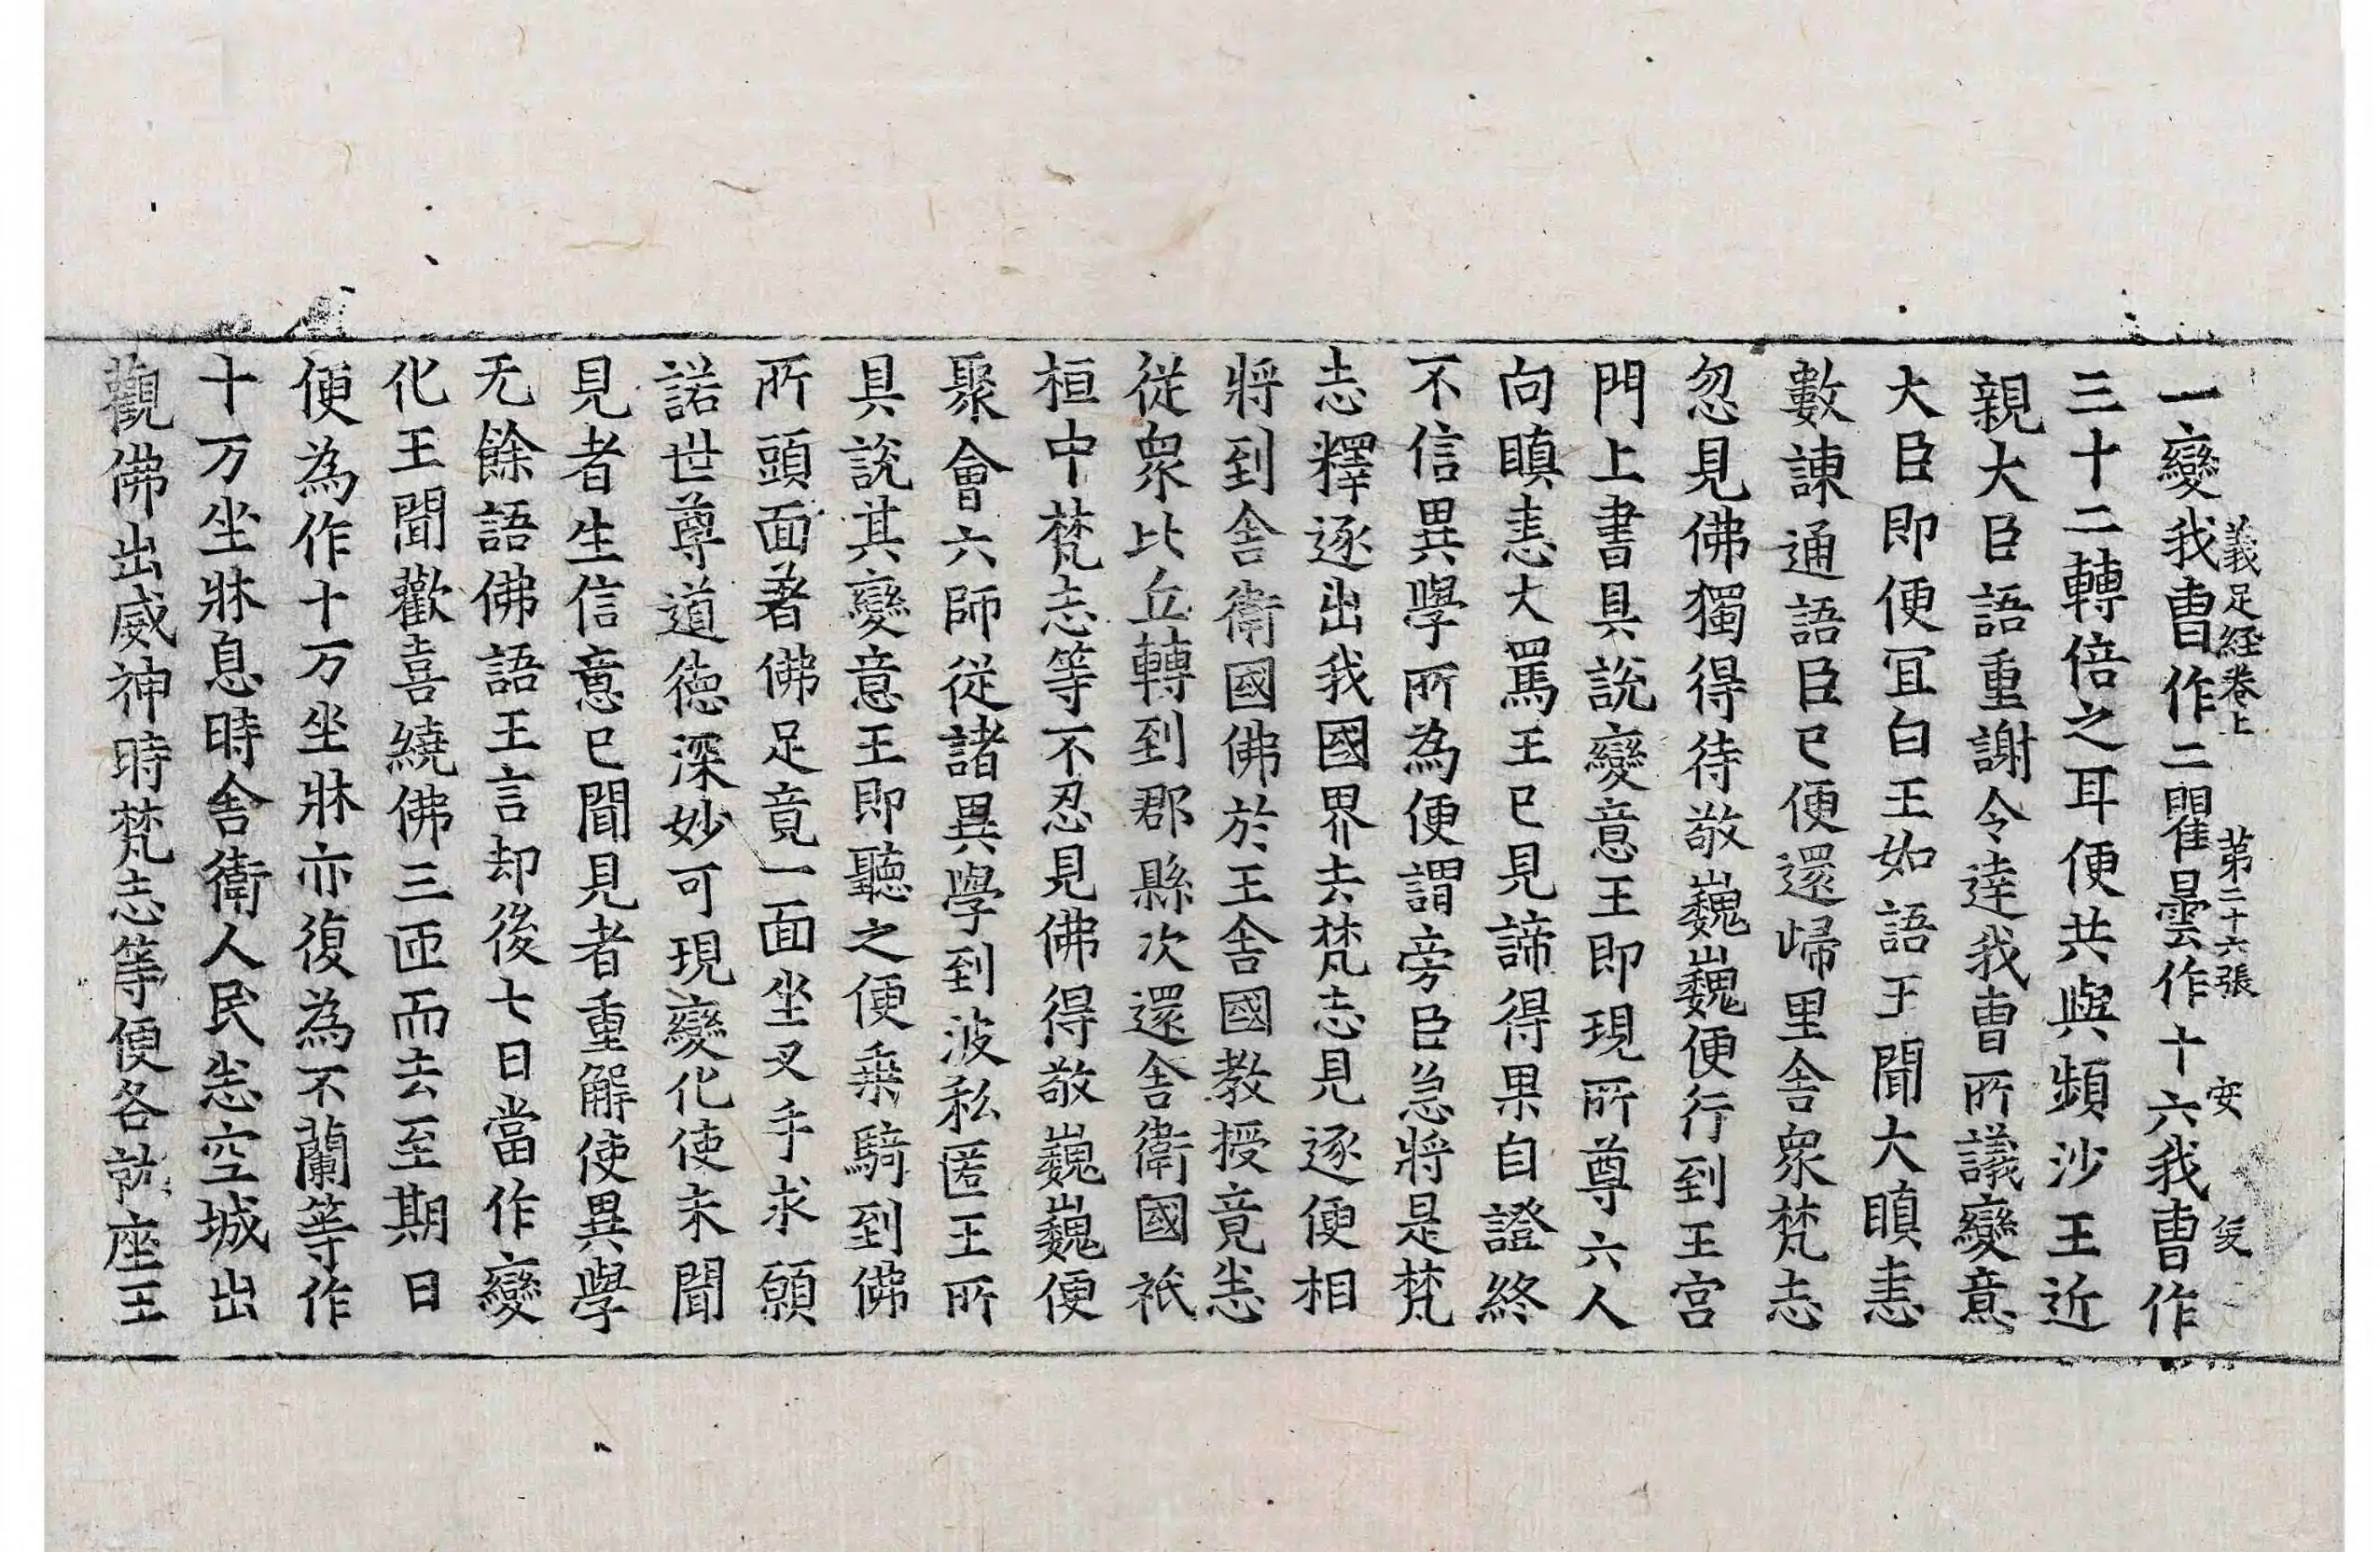 義足経卷上 第二十六張 安
一變我曺作二瞿曇作十六我曺作
三十二轉倍之耳便共與頻沙王近
親大臣語重謝令達我曺所議變意
大臣即便冝白王如語王聞大瞋恚
數諌通語臣已便還歸里舍衆梵志
忽見佛獨得待敬巍巍便行到王宫
門上書具說變意王即現所尊六人
向瞋恚大罵王已見諦得果自證終
不信異學所為便謂旁臣急將是梵
志釋逐出我國界去梵志見逐便相
將到舍衛國佛於王舍國教授竟悉
従衆比丘轉到郡縣次還舍衛國祇
桓中梵志等不忍見佛得敬巍巍便
聚會六師従諸異學到波私匿王所
具說其變意王即聽之便乗騎到佛
所頭面著佛足竟一面坐叉手求願
諾世尊道德深妙可現變化使未聞
見者生信意已聞見者重解使異學
无餘語佛語王言却後七日當作變
化王聞歡喜繞佛三匝而去至期日
便為作十万坐牀亦復為不蘭等作
十万坐牀息時舍衛人民悉空城出
觀佛出威神時梵志等便各就座王